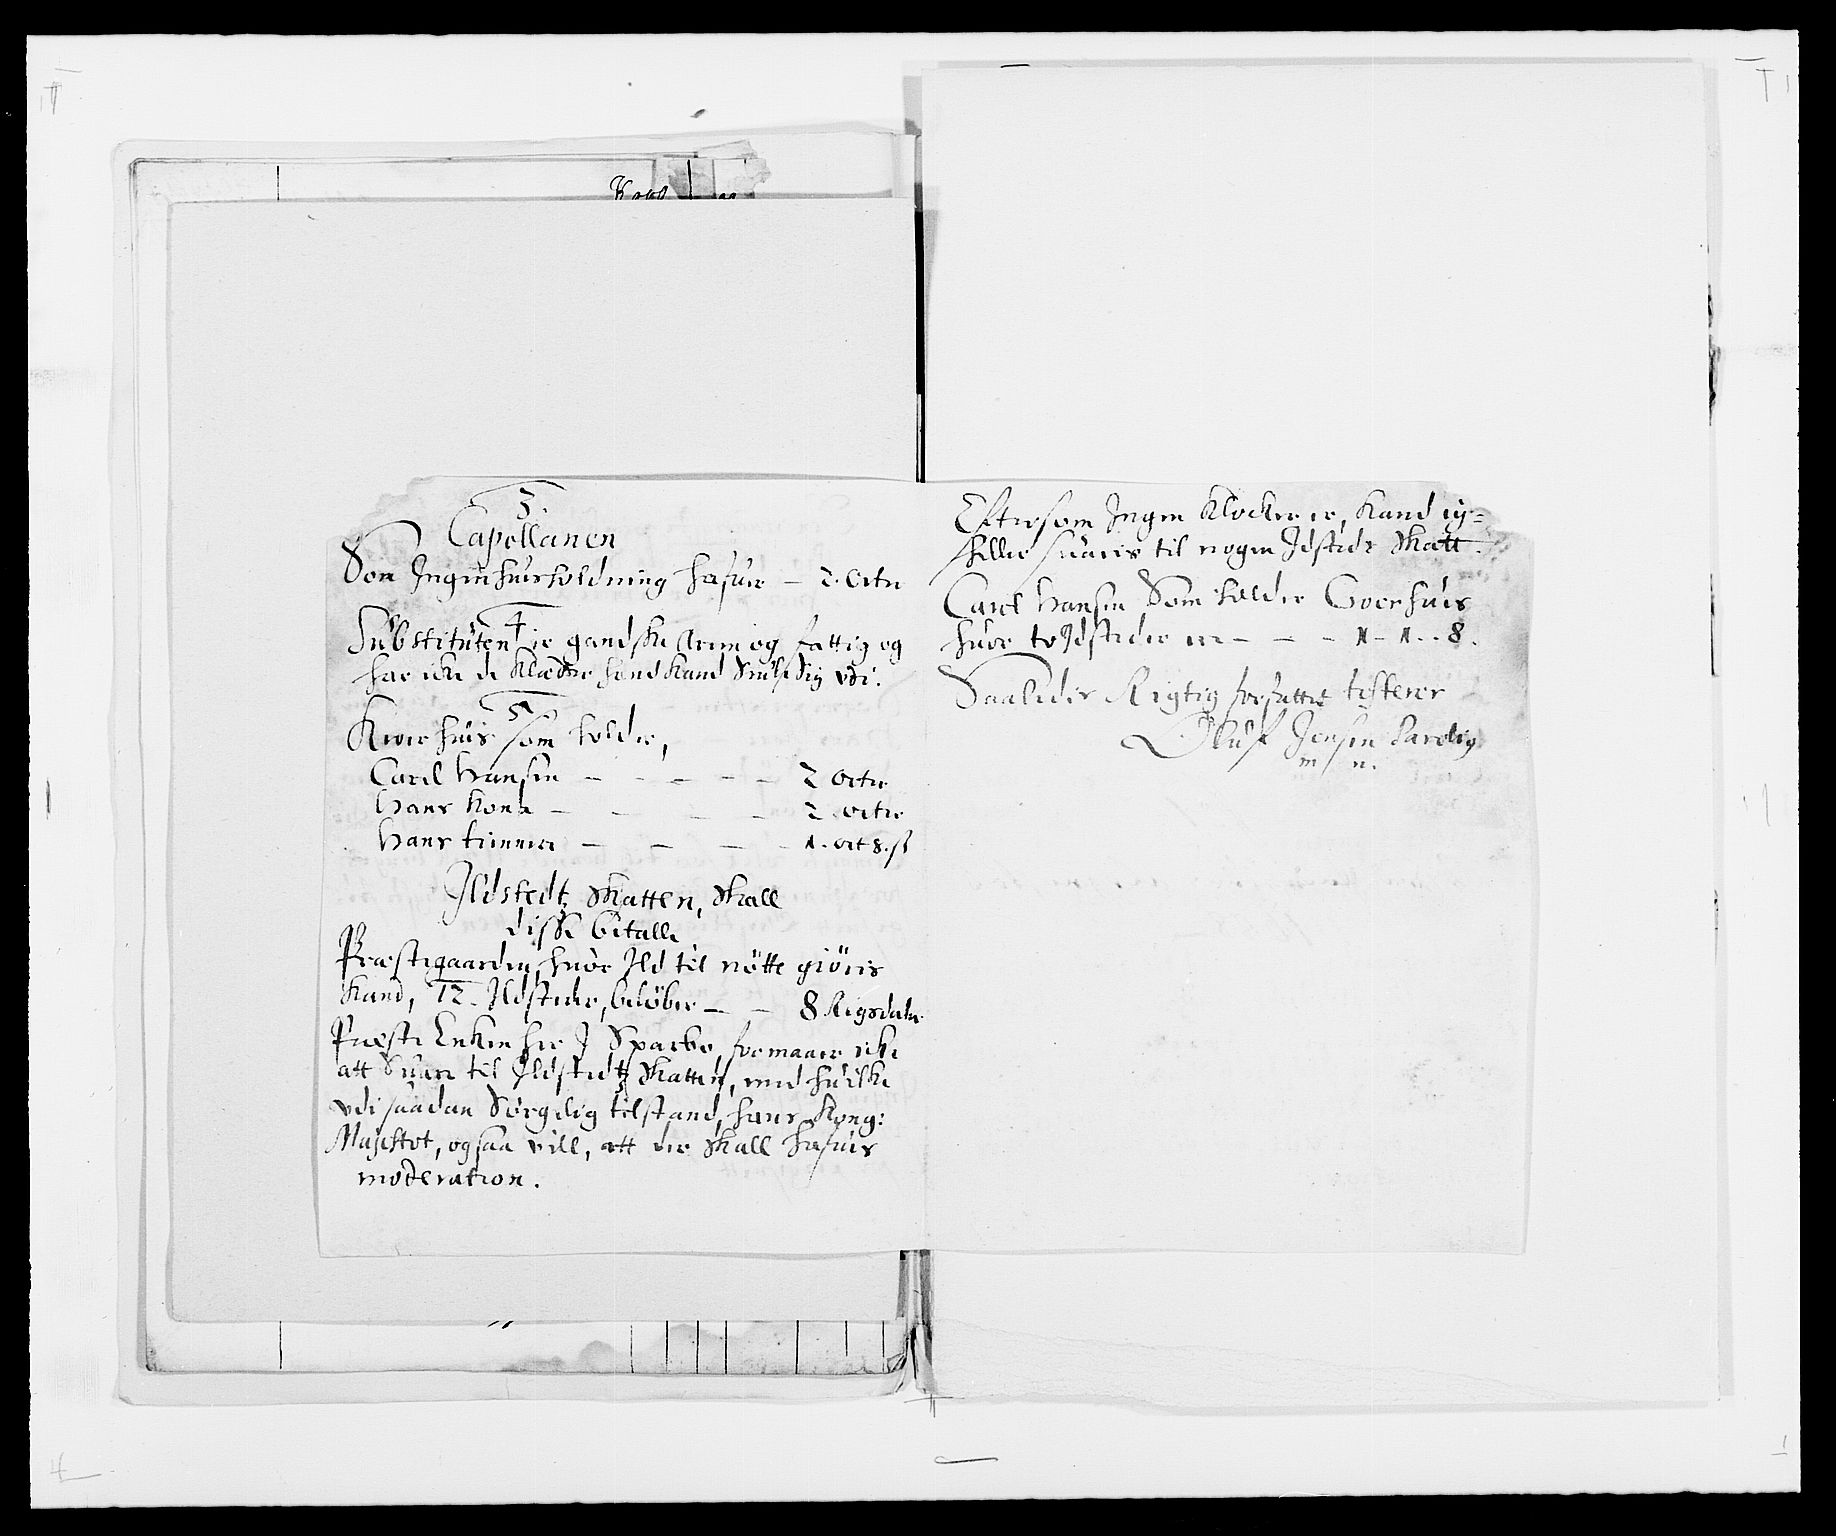 3.
Capellanen
Som Ingen huusholdning hafuer – 2. Orter
4
Substituten er gandske Arm og fattig og
har icke de Klæder hand kand Suøbe Sig udi.
5
Kroer huus som holder,
Carel Hansen – – – – 2 Orter
Hans Kone – – – – 2 Orter
Hans timmer – – – – 1. ort 8. ß
Ildstedz Skatten, Skall
disse betalle
Præstegaarden, huor Ild til nøtte giöris
Kand, 12. Ildsteder, belöber – – 8 Rigsdaler
Præste Enken her J Sparbo, formaaer icke
att Suare til Ildstedz Skatten, med huilke
udi saadan Sørgelig tilstand, hans Kong:
Majestet, ogsaa vill, att der skall hafuis
moderation.
Eftersom Ingen Klocker er, Kand ey=
heller suaris til nogen Ildsteds Skatt.
Carel Hansen Som holder Croerhuus
huor to Ildsteder er – – – 1 – 1 – 8.
Saaledis Rigtig forfattet testerer
Oluf Jensen Parelig
m n.